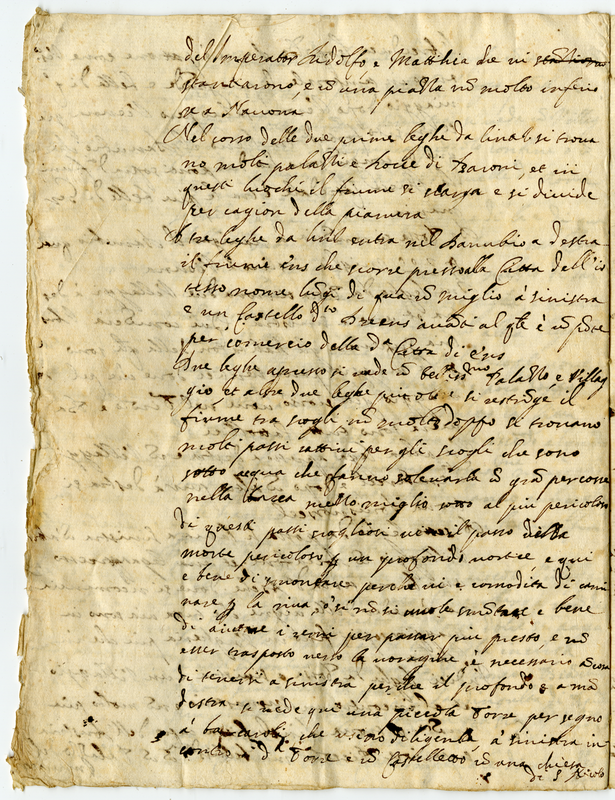 del Imperator Ridolfo e Matthia che vi
stantiarono, e cō una piazza nō molto inferio
re a Nauona
Nel corso delle due prime leghe da linz si troua
no molti palazzi e Rocce di Baroni, et in
questi luochi il fiume si slarga e si divide
per cagion della pianura
A tre leghe da entra nel Danubio a destra
il fiume ens che scorre presso alla Citta dell'is
tesso nome lungi di qua ū miglio à sinistra
e un Castello dto auāti al qle è ū ponte
per comercio della da Citta di ens
Due leghe apresso si uede ū bellissimo Palazzo e Villag
gio, et altre due leghe piccole si restringe il
fiume tra scogli nō molto doppo si trouano
molti passi cattiui per gli scogli che sono
sotto acqua che fanno soleuarla cō gran percosse
nella barca mezzo miglio sotto al piu pericoloso
di questi passi scogliosi il passo della
morte pericoloso p un profondo uortice, e qui
e bene di smontare perche vi e comodità di cami
nare p la riua, ò se nō si uuole smōtare e bene
di i remi per passar piu presto, e nō
esser trasposto uerso la uoragine è necessario ācora
di tenersi a sinistra perche il profondo e a mā
destra si uede qui una piccola Torre per segno
à barcaroli, che usino diligenza à sinistra in
contro a da Torre e ū Castelletto cō una chiesa
di S Nicolo